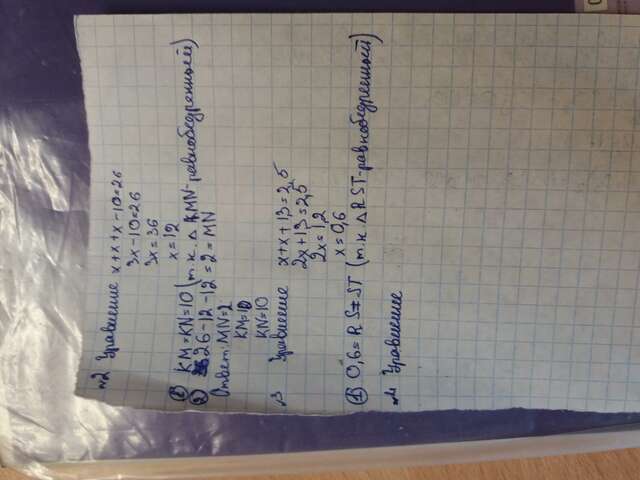 №2 Уравнение x+x+x-10=26
3x-10=26
3x=36
x=12
① KM=KN=10 (т.к △ KMN-равнобедренный)
② 26-12-12=2=MN
Ответ: MN=2
KM=10
KN=10
Уравнение x+x+13=2,5
2x+13=2,5
2x=1,2
x=0,6
① 0,6=RS=ST (т.к △ RST-равнобедренный)
Уравнение